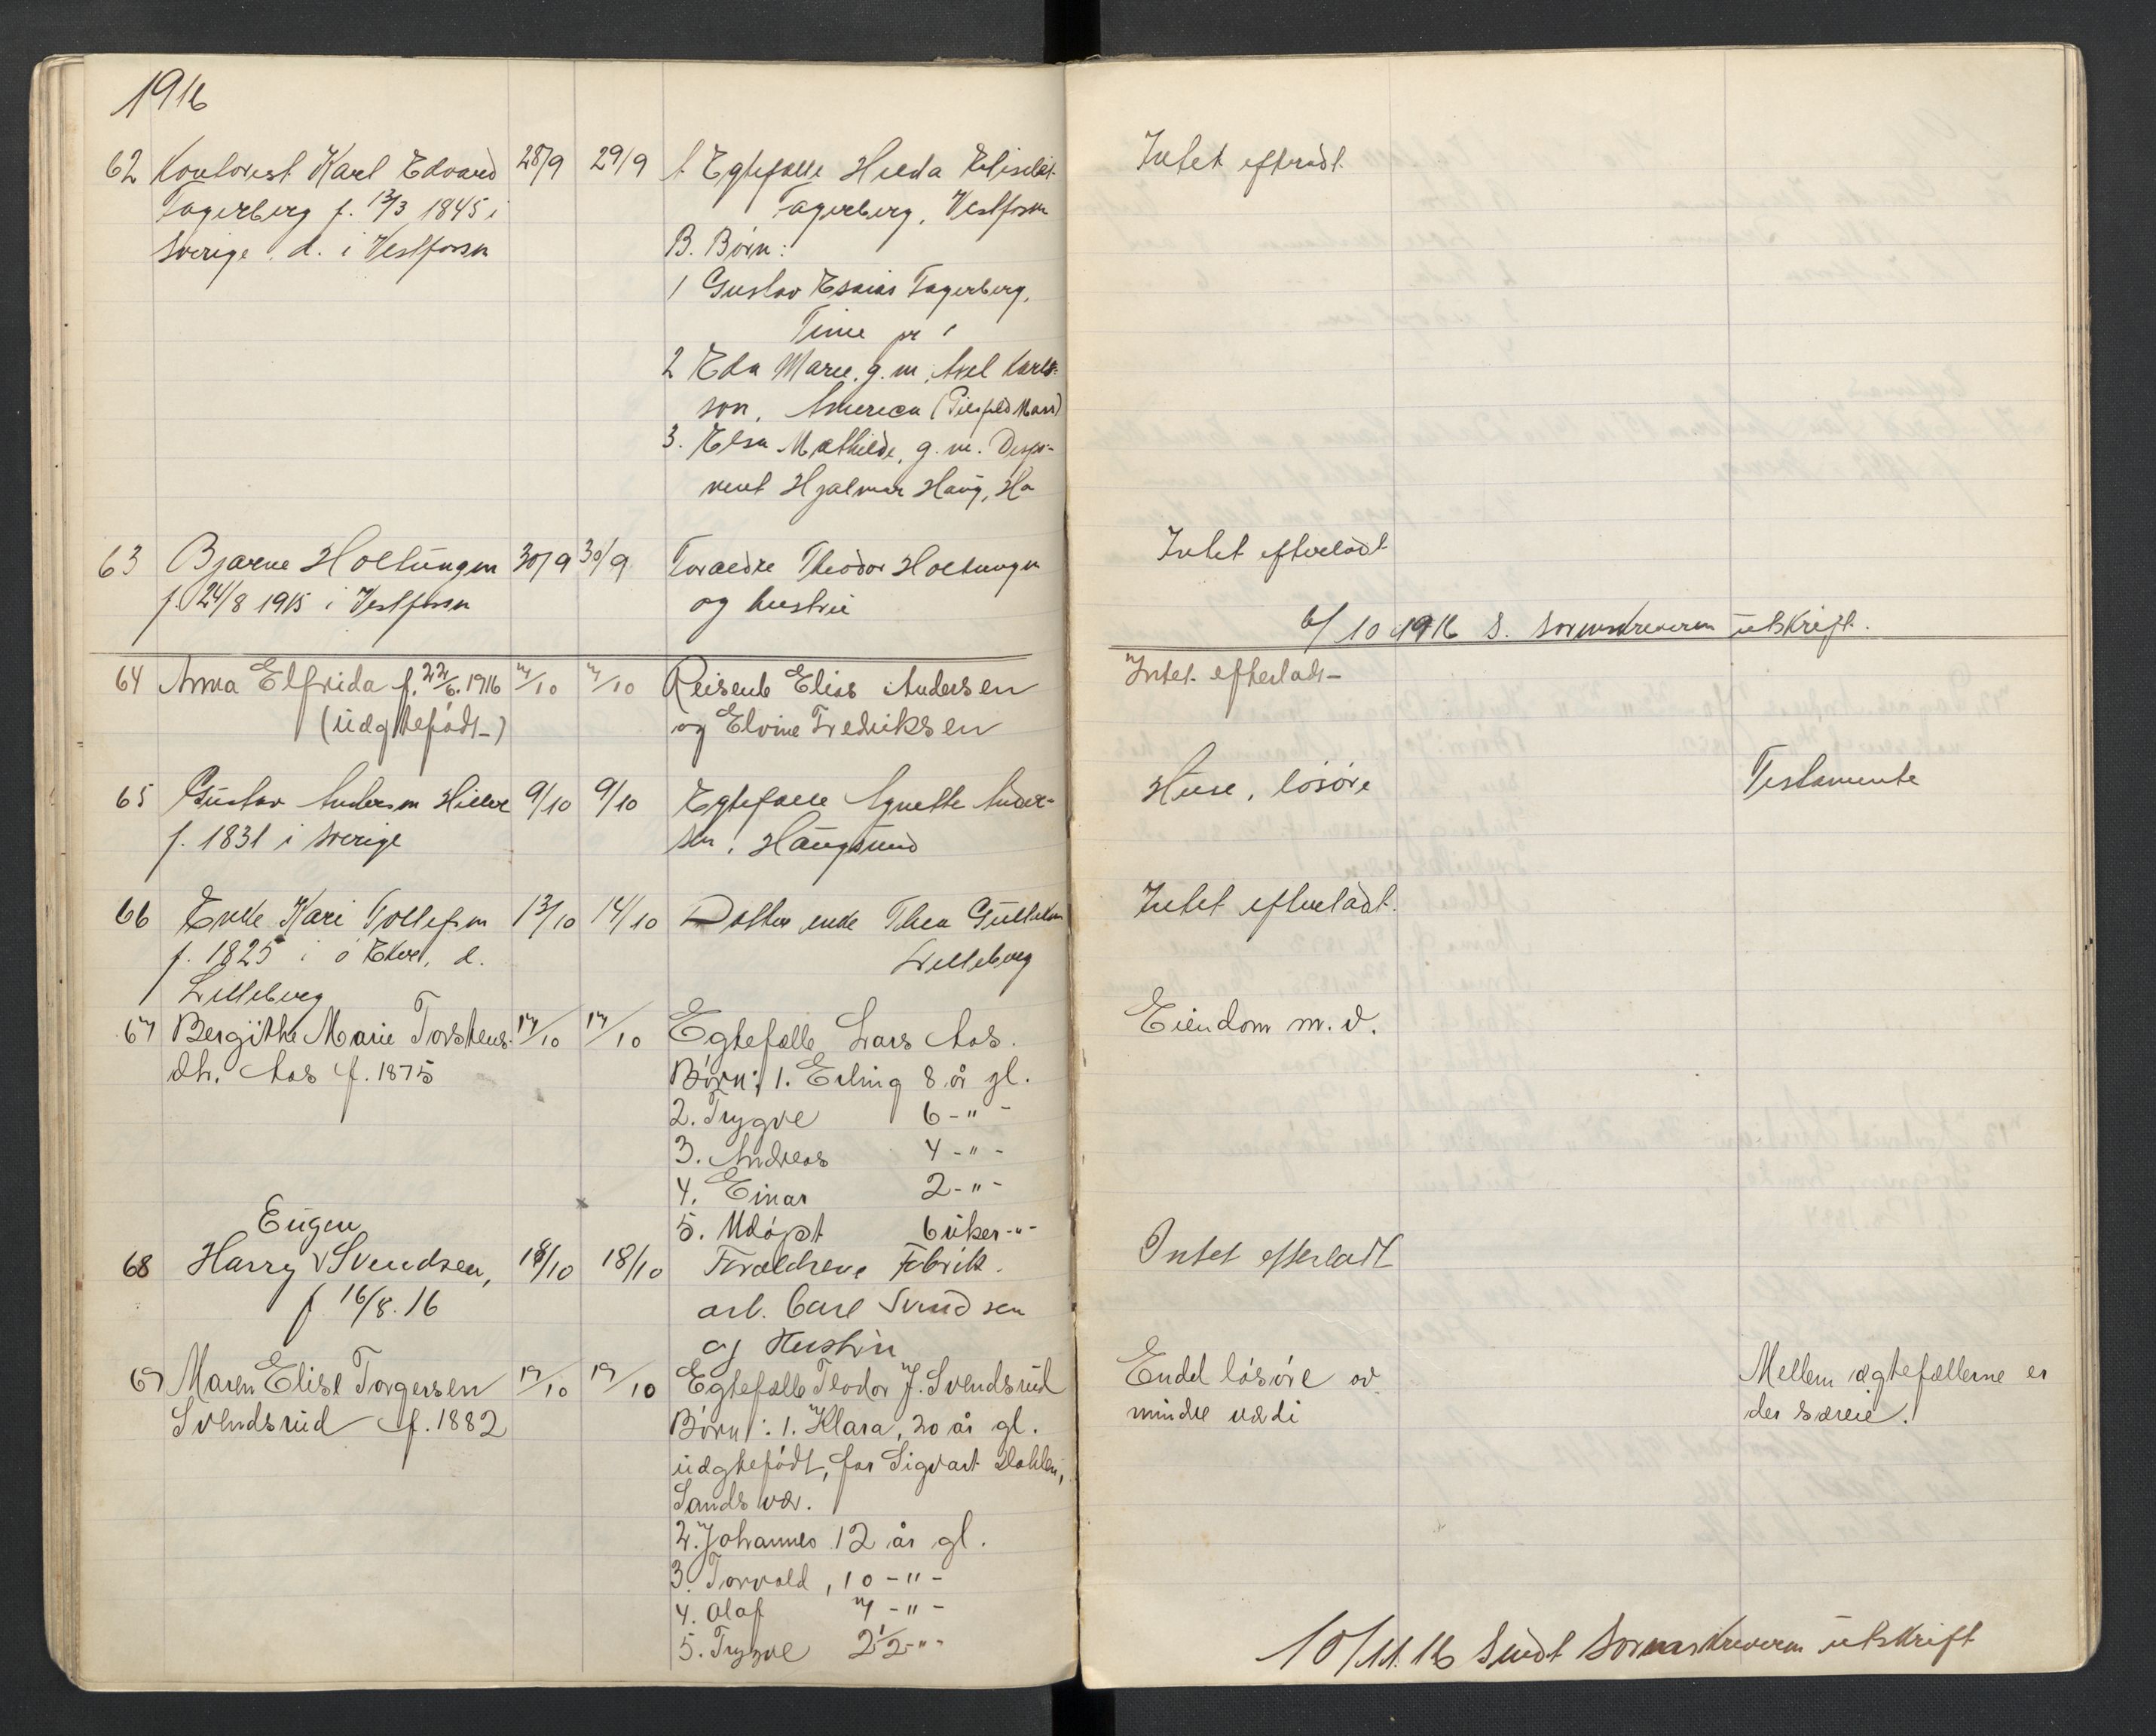 1916
62 Kontorist Karl Edvard 28/9 29/9 Egtefelle Hilda Elisabet Intet efterladt
Fagerberg f. 12/3 1845 i Fagerberg, Vestfossen
Sverige. d. i Vestfossen B. Børn:
1 Gustav Esaias Fagerberg,
Time pr
2 Eda Marie, g. m. Axel Karls-
son, America
3. Elsa Mathilde, g. m. Dispo-
nent Hjalmar Haug, Ha
63 Bjarne Holtungen 30/9 30/9 Foraedre Theodor Holtungen Intet efterladt
f. 24/8 1915 i Vestfossen og hustru
6/10 1916 S. Sorenskriveren utskrift.
64 Anna Elfrida f. 22/6. 1916 7/10 7/10 Reisende Elias Andersen Intet efterladt
(uægtefødt-) og Elvine Fredriksen
65 Gustav Andersen Hiller 9/10 9/10 Egtefaelle Agnethe Ander- Huse, løsøre Testamente
f. 1831 i Sverige sen, Haugsund
66 Enke Kari Tollefsen 13/10 14/10 Datter enke Thea Gulliksen Intet efterladt.
f. 1825 i ø Eker, d. Lilleborg
Lilleborg
67 Bergithe Marie Torstens- 17/10 17/10 Egtefælle Lars Aas. Eiendom m. v.
dtr. Aas f. 1875 Børn: 1. Erling 8 år gl.
2. Trygve 6 - " -
3. Andreas 4 - " -
4. Einar 2 - " -
5. Udøpt 6 uker - " -
Eugen
68 Harry v Svendsen, 18/10 18/10 Forældrene Fabrik. Intet efterladt
f 16/8. 16 arb. Carl Svendsen
og Hustru
69 Maren Elise Torgersen 19/10 19/10 Egtefælle Teodor J. Svendsrud Endel løsøre av Mellem ægtefællerne er
Svendsrud f. 1882 Børn: 1. Klara, 20 år gl. mindre værdi der særeie.
uægtefødt, far Sigvart Dahlen,
Sandsvær.
2. Johannes 12 år gl.
3. Torvald, 10 - " -
4. Olaf 7 - " -
5. Trygve 2 1/2 - " -
10/11. 16 Sendt Sorenskriveren utskrift